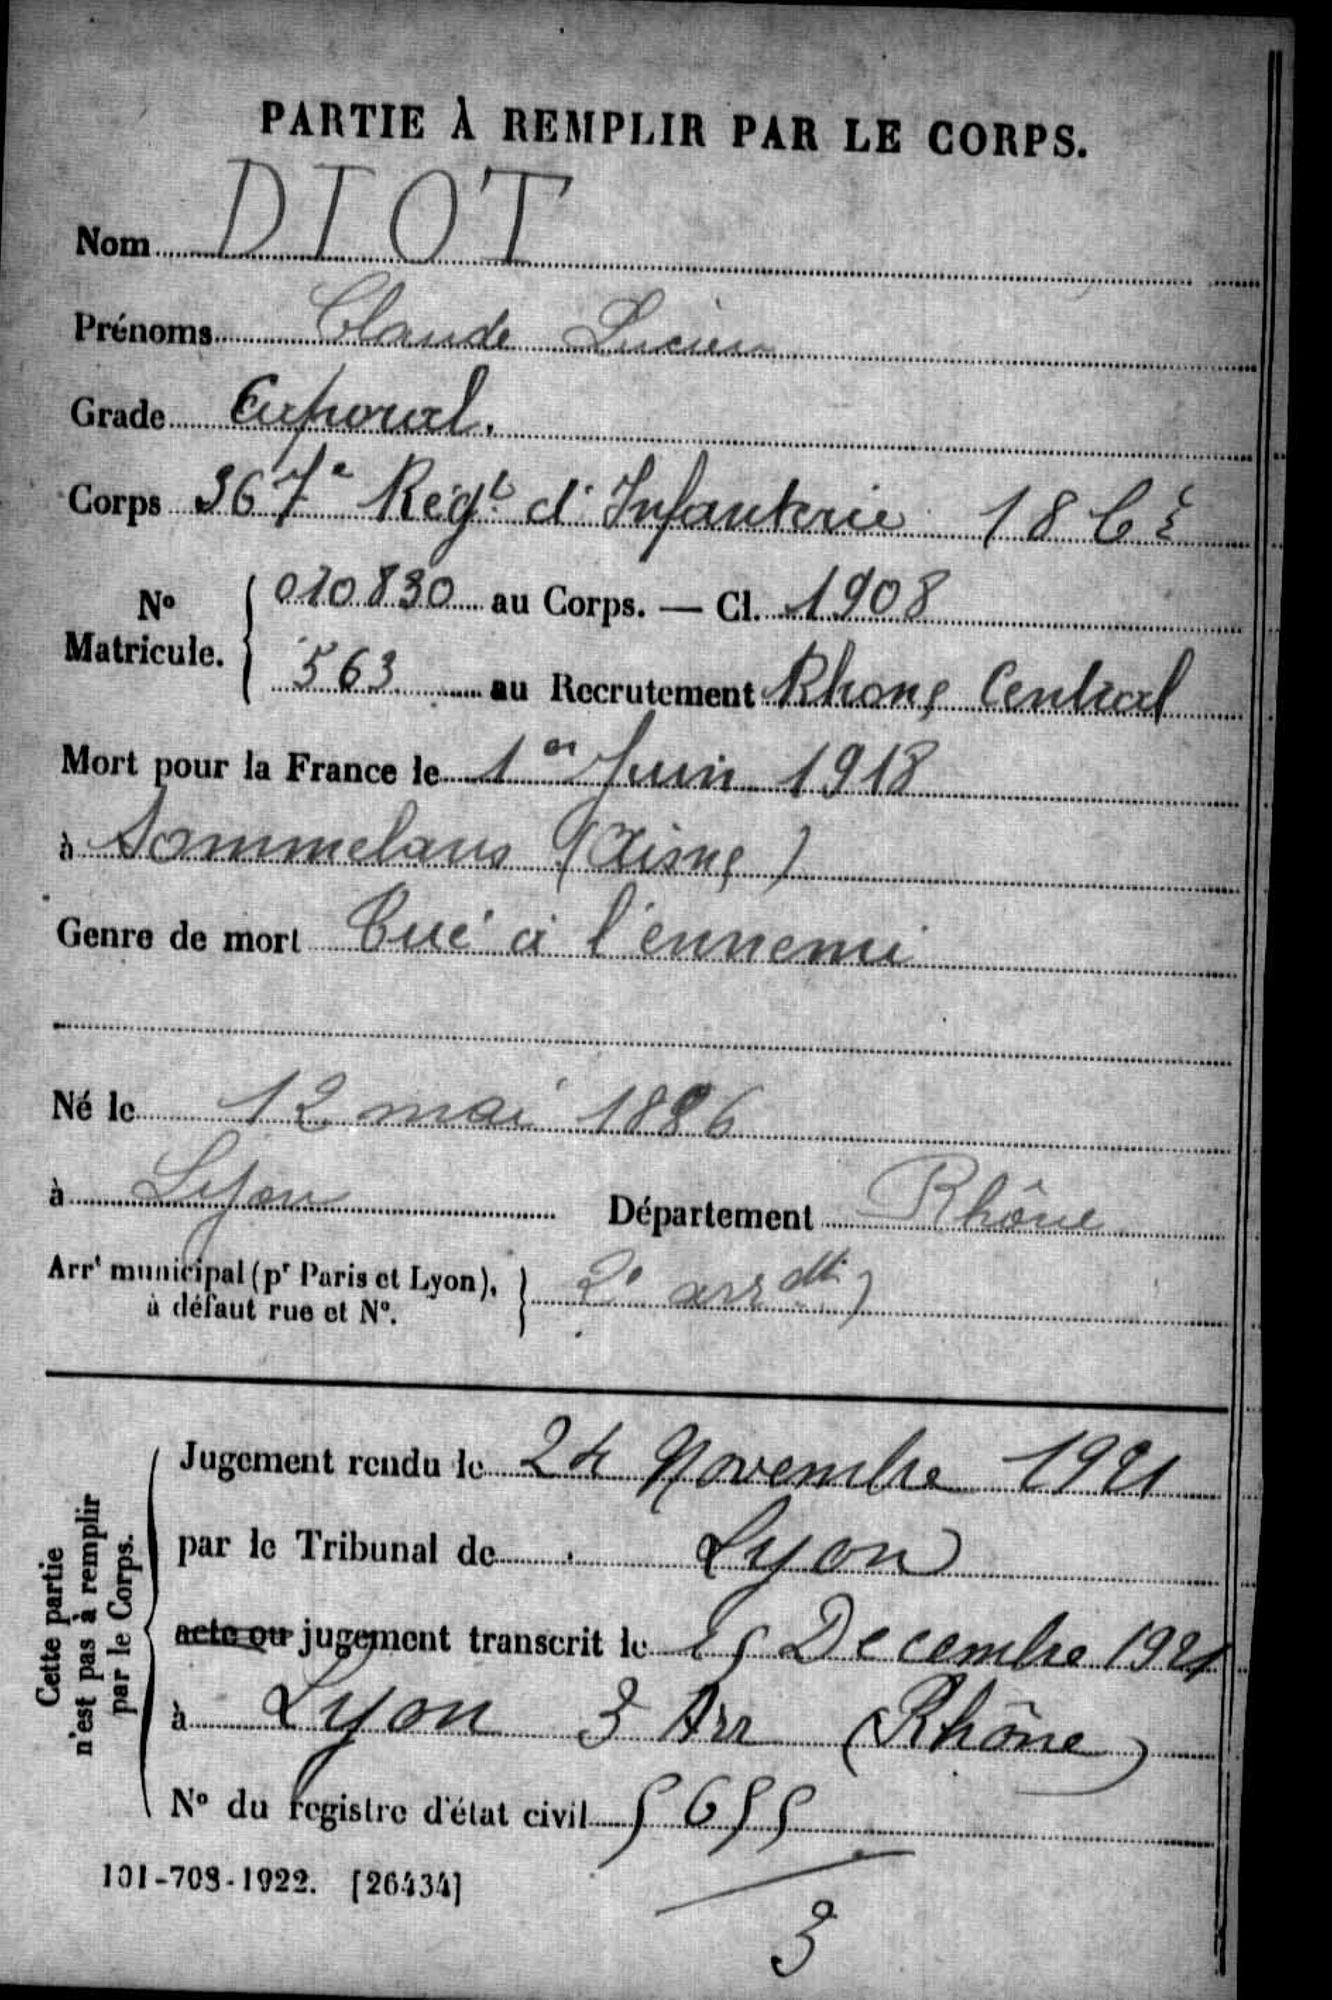 PARTIE À REMPLIR PAR LE CORPS.
Nom DIOT
Prénoms Claude Lucien
Grade Caporal.
Corps 367e Régt d'Infanterie 18 Cie
No Matricule. 010830 au Corps. — Cl. 1908
563 au Recrutement Rhone Central
Mort pour la France le 1er Juin 1918
à Sommelans (Aisne)
Genre de mort Tué à l'ennemi
Né le 12 mai 1886
à Lyon Département Rhône
Arrt municipal (pr Paris et Lyon), à défaut rue et No. 2e arrdt)
Cette partie n'est pas à remplir par le Corps.
Jugement rendu le 24 Novembre 1921
par le Tribunal de Lyon
acte ou jugement transcrit le 15 Decembre 1921
à Lyon 3 Arr (Rhône)
No du registre d'état civil 5655
101-708-1922. [26434]
3